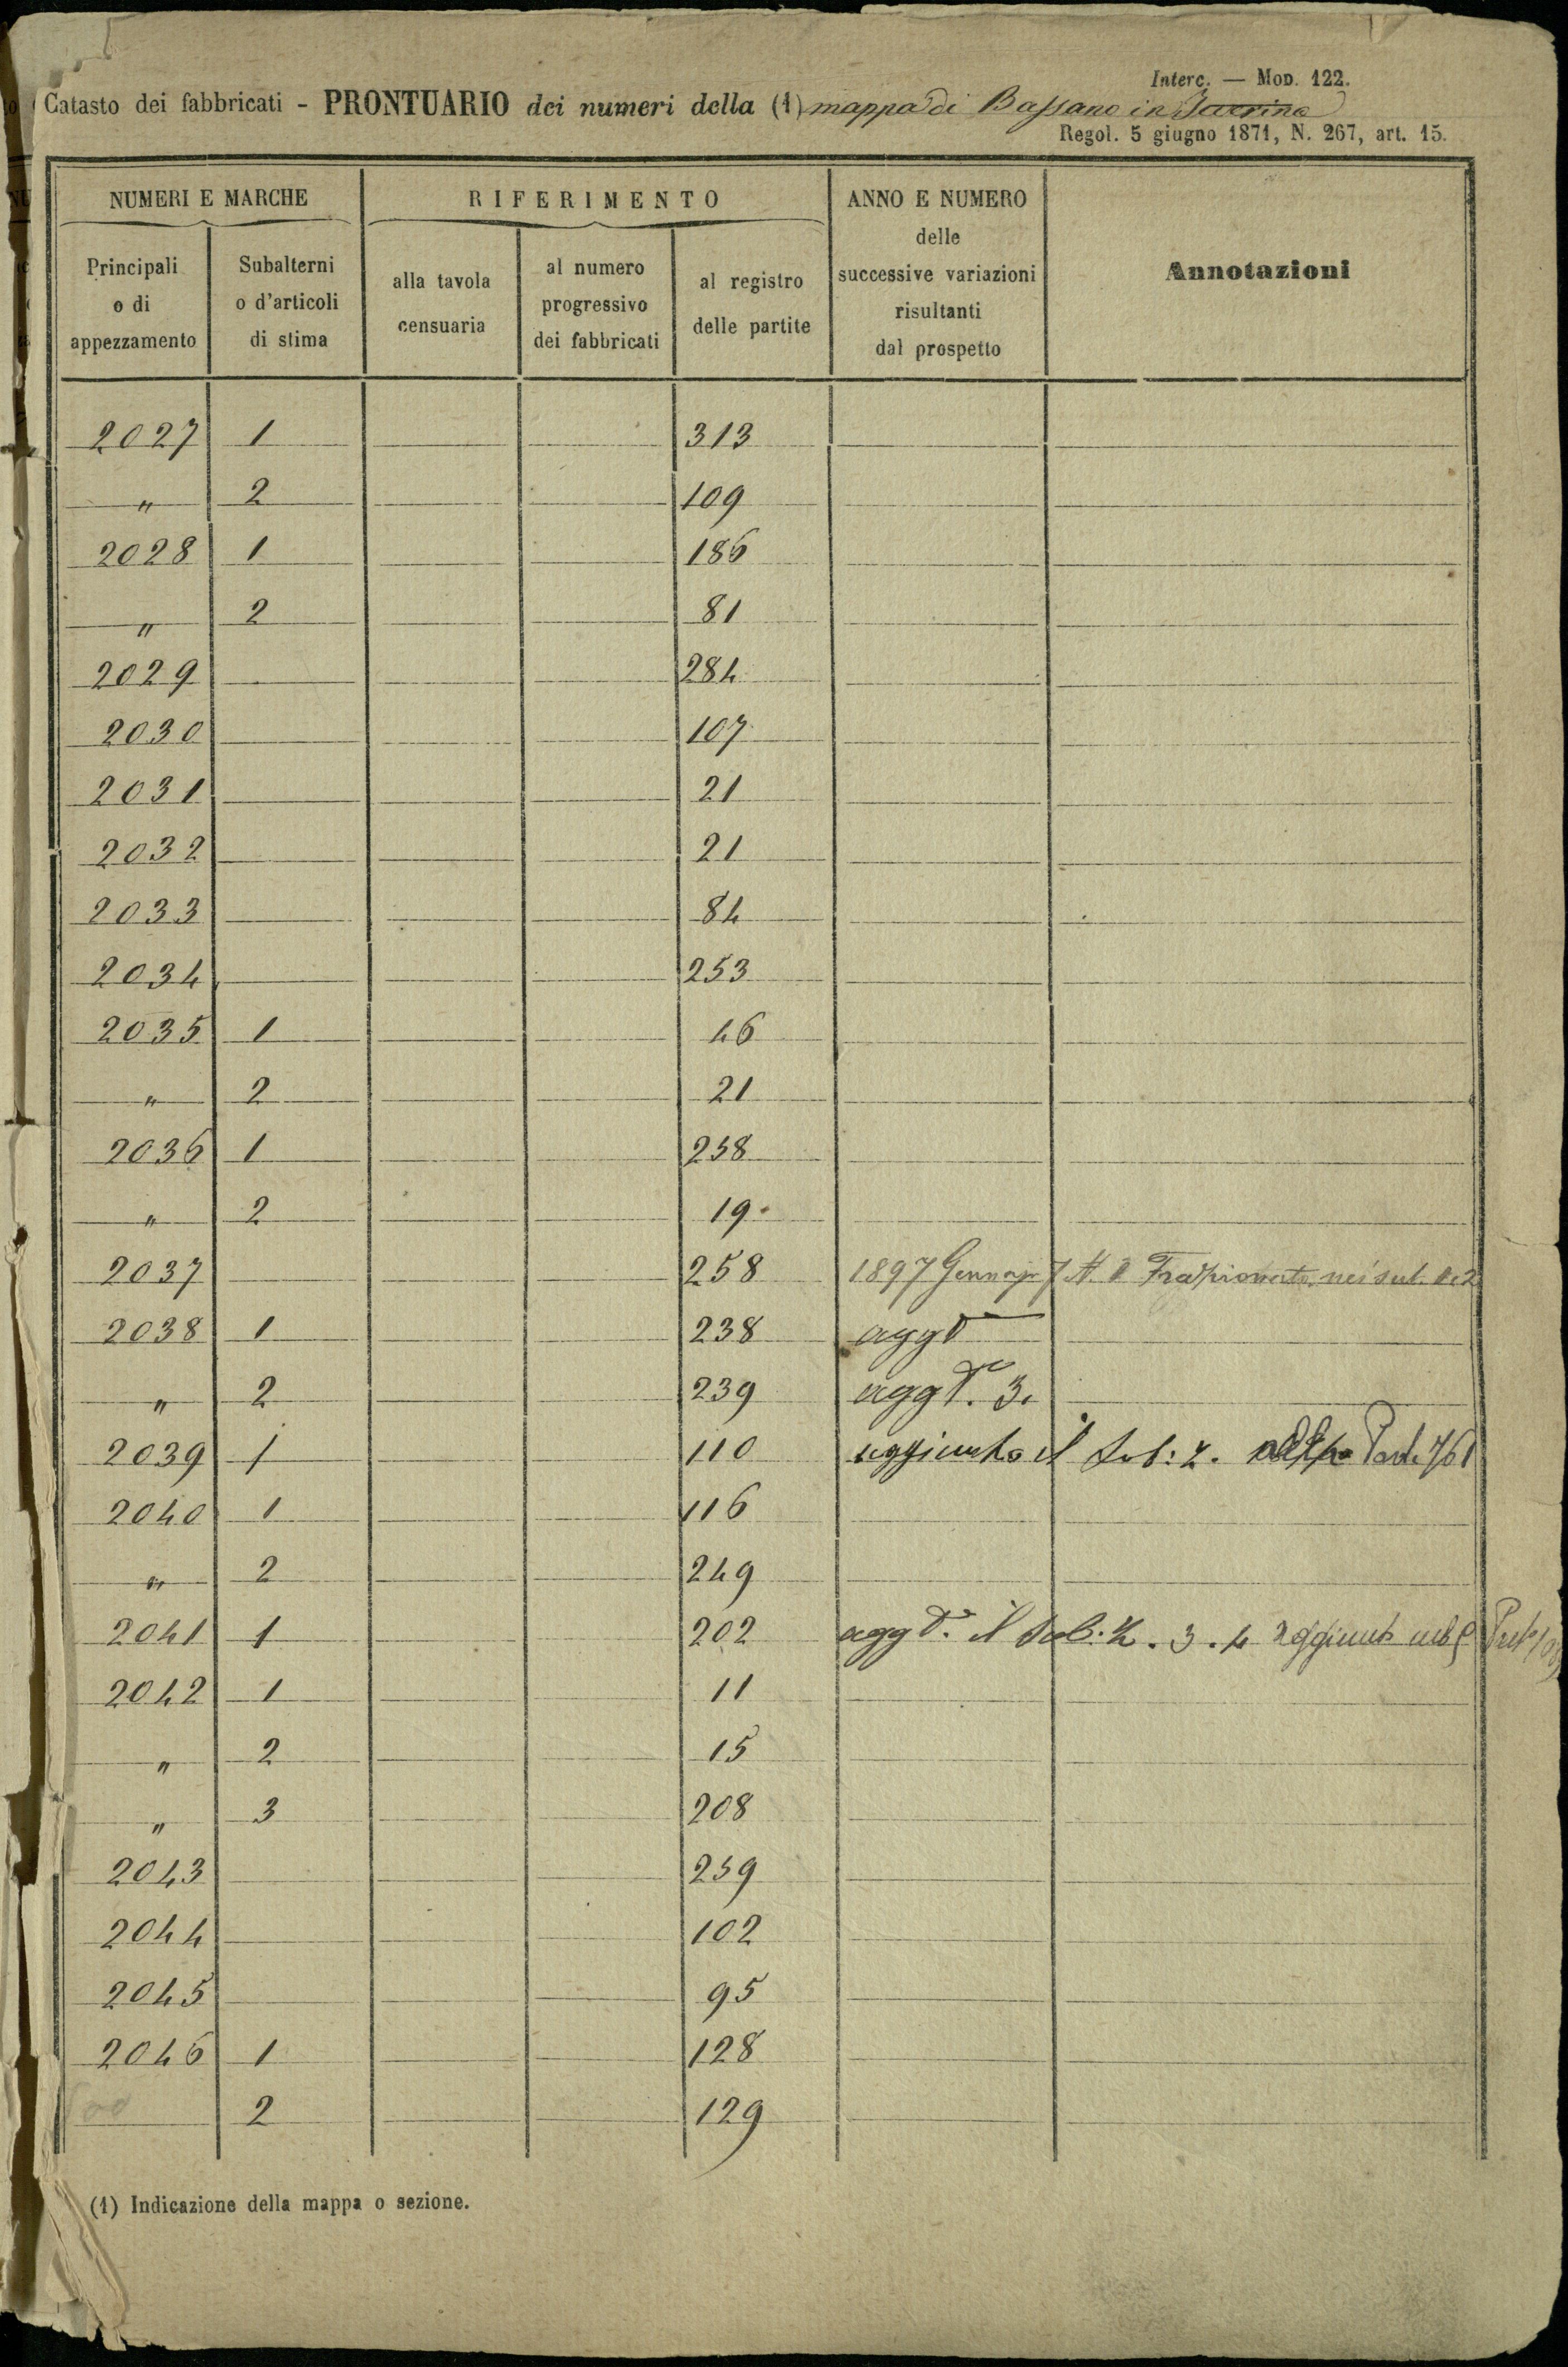 Interc. — Mod. 122.
Catasto dei fabbricati - PRONTUARIO dei numeri della (1) mappa di Bassano in Teverina
Regol. 5 giugno 1871, N. 267, art. 15.
NUMERI E MARCHE RIFERIMENTO ANNO E NUMERO delle successive variazioni risultanti dal prospetto Annotazioni
Principali o di appezzamento Subalterni o d'articoli di stima alla tavola censuaria al numero progressivo dei fabbricati al registro delle partite
2027 1 313
" 2 109
2028 1 186
" 2 81
2029 284
2030 107
2031 21
2032 21
2033 84
2034 253
2035 1 46
" 2 21
2036 1 258
" 2 19.
2037 258 1897 Gennajo 7 nei sub. 1. 2
2038 1 238 aggto
" 2 239 aggto. 3.
2039 1 110 aggiunto il Sub: 2. Part. 761
2040 1 116
" 2 249
2041 1 202 aggto. il Sub. 2. 3. 4 aggiunto
2042 1 11
" 2 15
" 3 208
2043 259
2044 102
2045 95
2046 1 128
2 129
(1) Indicazione della mappa o sezione.